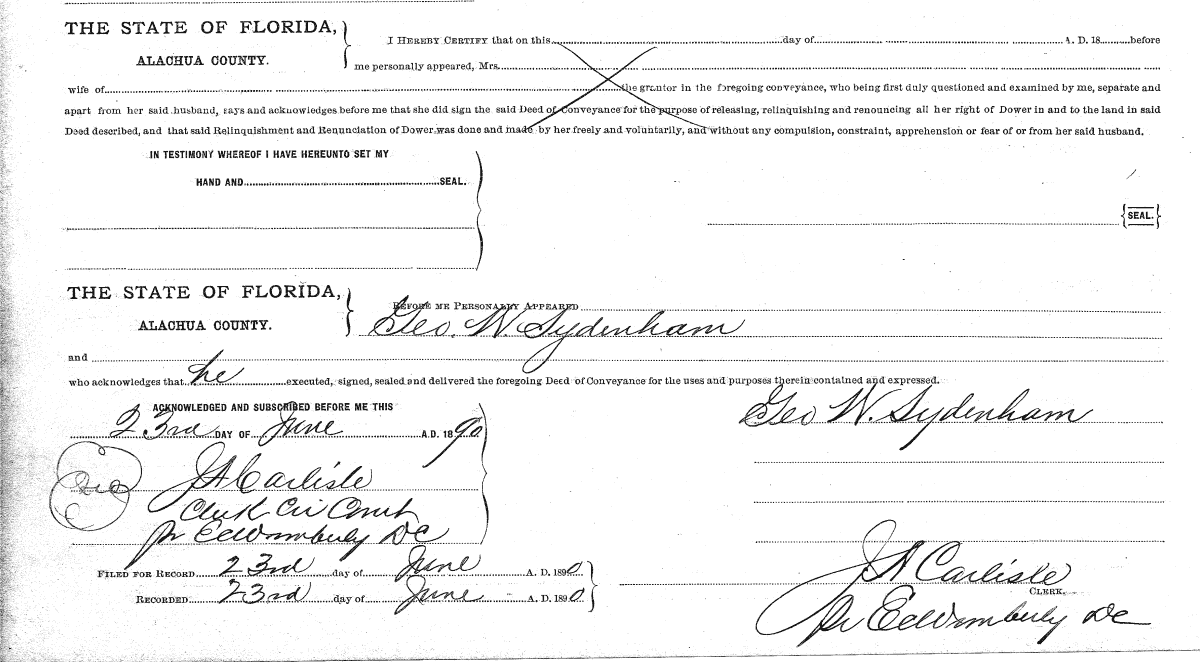 THE STATE OF FLORIDA,
ALACHUA COUNTY.
I HEREBY CERTIFY that on this day of A. D. 18 before
me personally appeared, Mrs.
wife of the grantor in the foregoing conveyance, who being first duly questioned and examined by me, separate and
apart from her said husband, says and acknowledges before me that she did sign the said Deed of Conveyance for the purpose of releasing, relinquishing and renouncing all her right of Dower in and to the land in said
Deed described, and that said Relinquishment and Renunciation of Dower was done and made by her freely and voluntarily, and without any compulsion, constraint, apprehension or fear of or from her said husband.
IN TESTIMONY WHEREOF I HAVE HEREUNTO SET MY
HAND AND SEAL.
SEAL.
THE STATE OF FLORIDA,
ALACHUA COUNTY.
BEFORE ME PERSONALLY APPEARED
Geo. W. Sydenham
and
who acknowledges that he executed, signed, sealed and delivered the foregoing Deed of Conveyance for the uses and purposes therein contained and expressed.
ACKNOWLEDGED AND SUBSCRIBED BEFORE ME THIS
23rd DAY OF June A.D. 1890
J A Carlisle
Clerk Cir Court
pr E C Wimberly DC
FILED FOR RECORD 23rd day of June A. D. 1890
RECORDED 23rd day of June A. D. 1890
Geo W. Sydenham
J A Carlisle
CLERK.
pr E C Wimberly DC